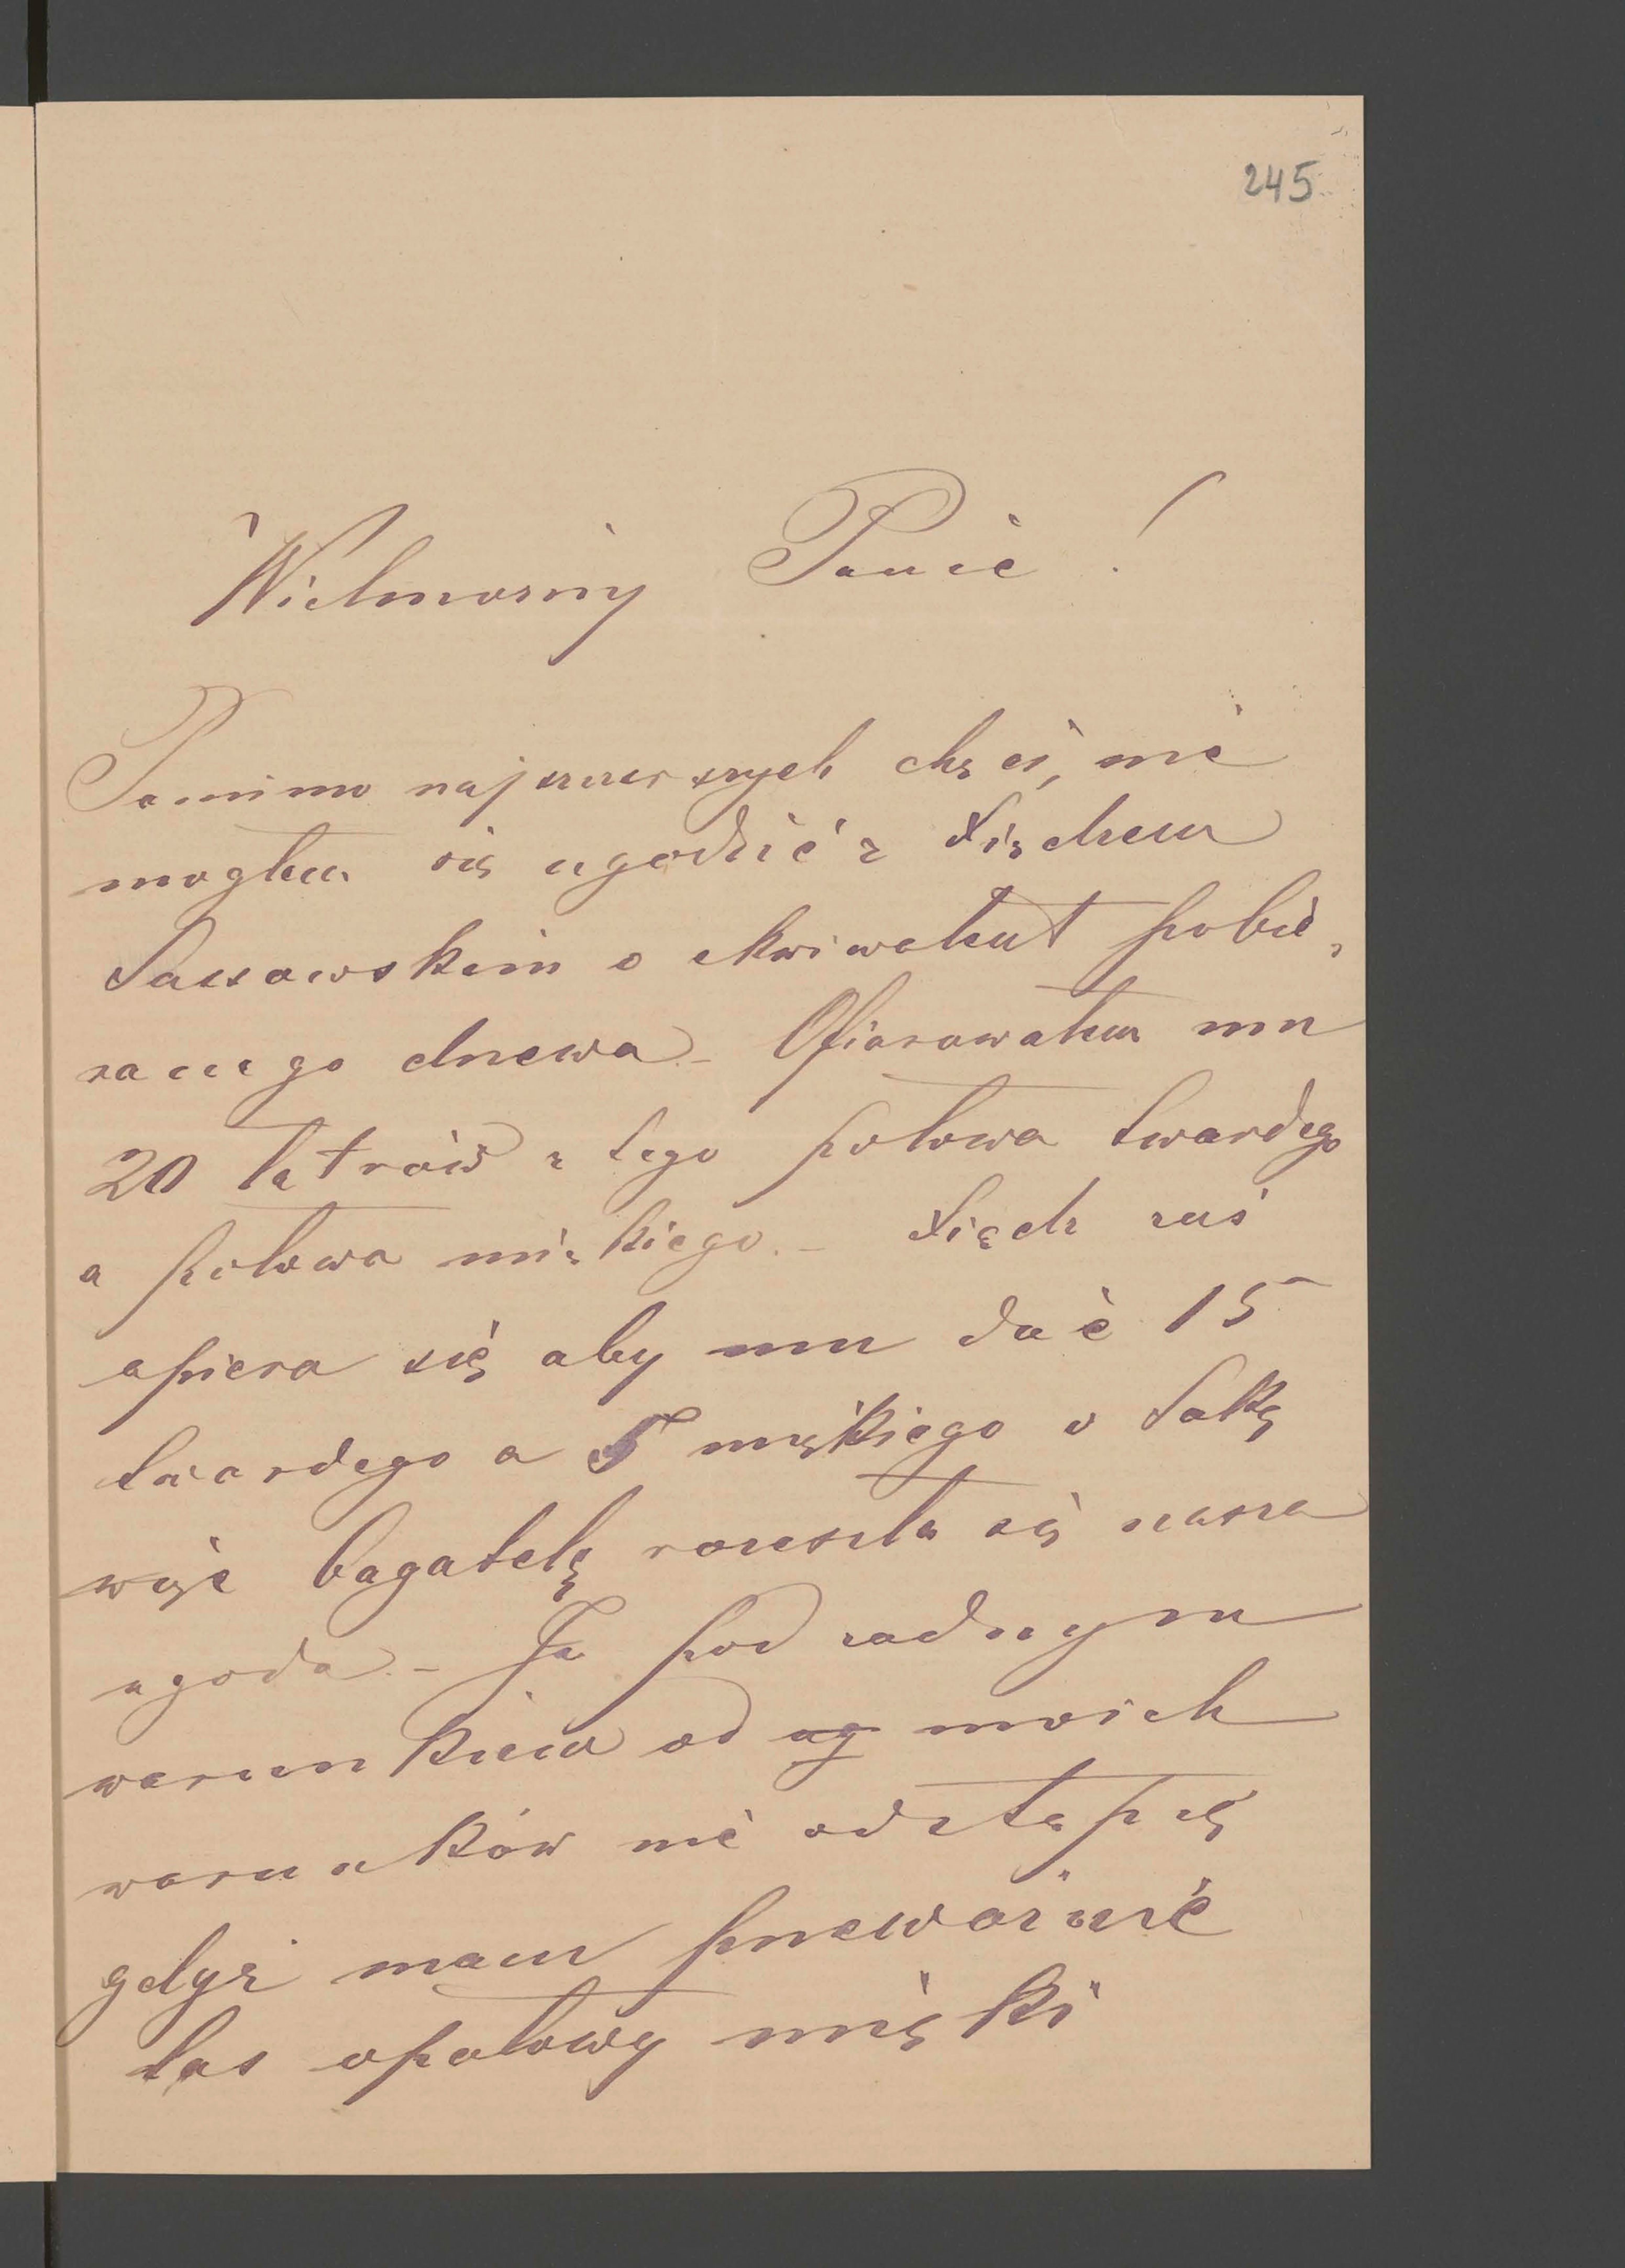 245
Wielmożny Panie!
Pomimo najszczerszych chęci, nie
mogłem się ugodzić z Xiędzem
o ekwiwalent pobie-
ranego drzewa. – Ofiarowałem mu
20 łatrów z tego połowa twardego
a połowa miękkiego. – Xiądz zaś
upiera się aby mu dać 15
twardego a 5 miękkiego o taką
więc bagatelę rozeszła się nasza
ugoda. – Ja pod żadnym
warunkiem od ug moich
warunków nie odstąpię
gdyż mam przeważnie
las opałowy miękki